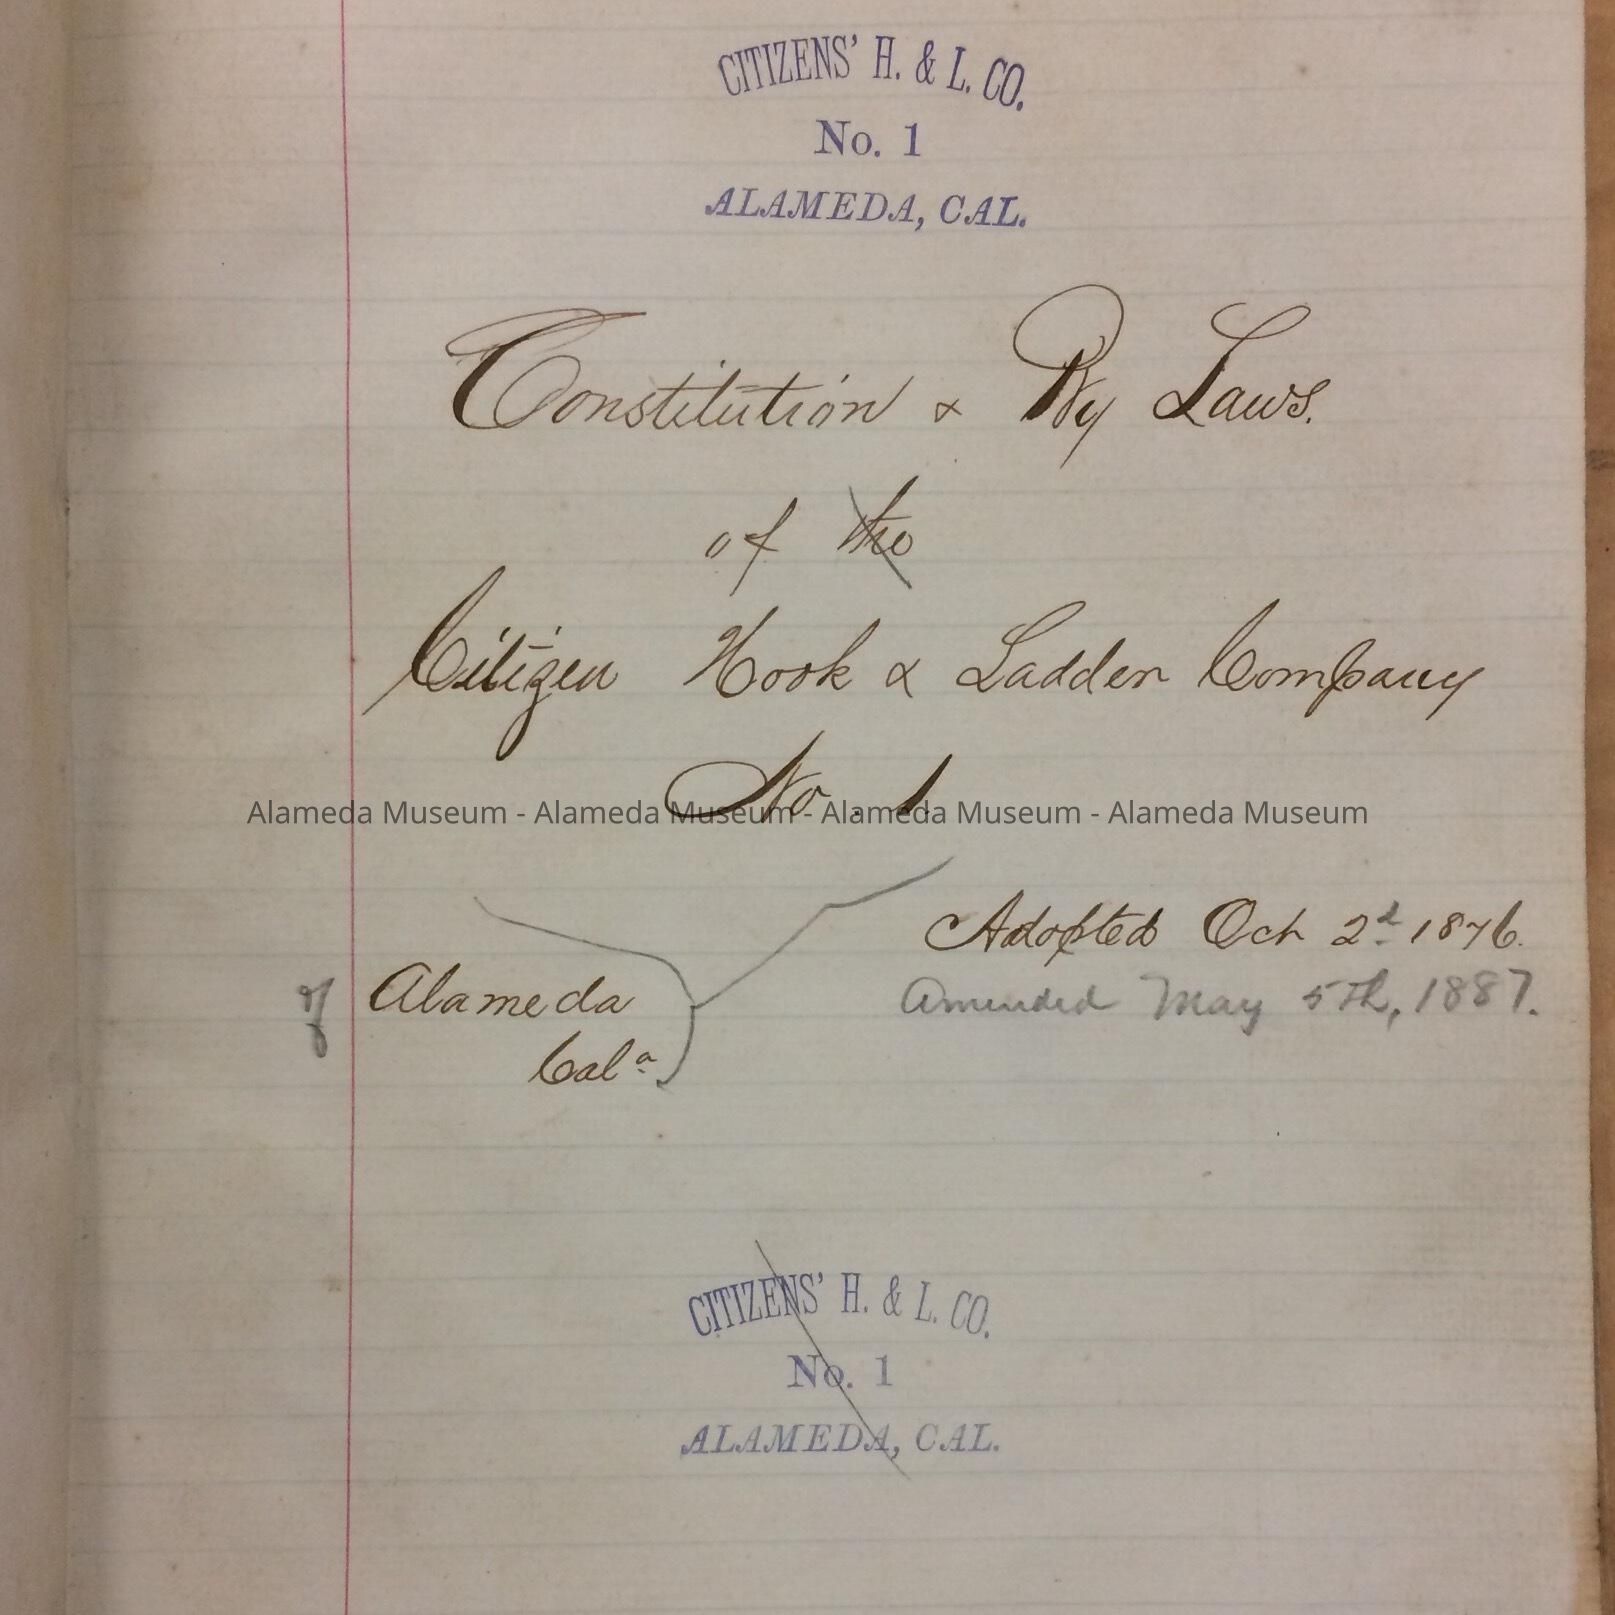 CITIZENS' H. & L. CO.
No. 1
ALAMEDA, CAL.
Constitution & By Laws.
of the
Citizen Hook & Ladder Company
No. 1
Alameda Museum - Alameda Museum - Alameda Museum - Alameda Museum
Adopted Oct 2d 1876.
of Alameda Amended May 5th, 1887.
Cala
CITIZENS' H. & L. CO.
No. 1
ALAMEDA, CAL.